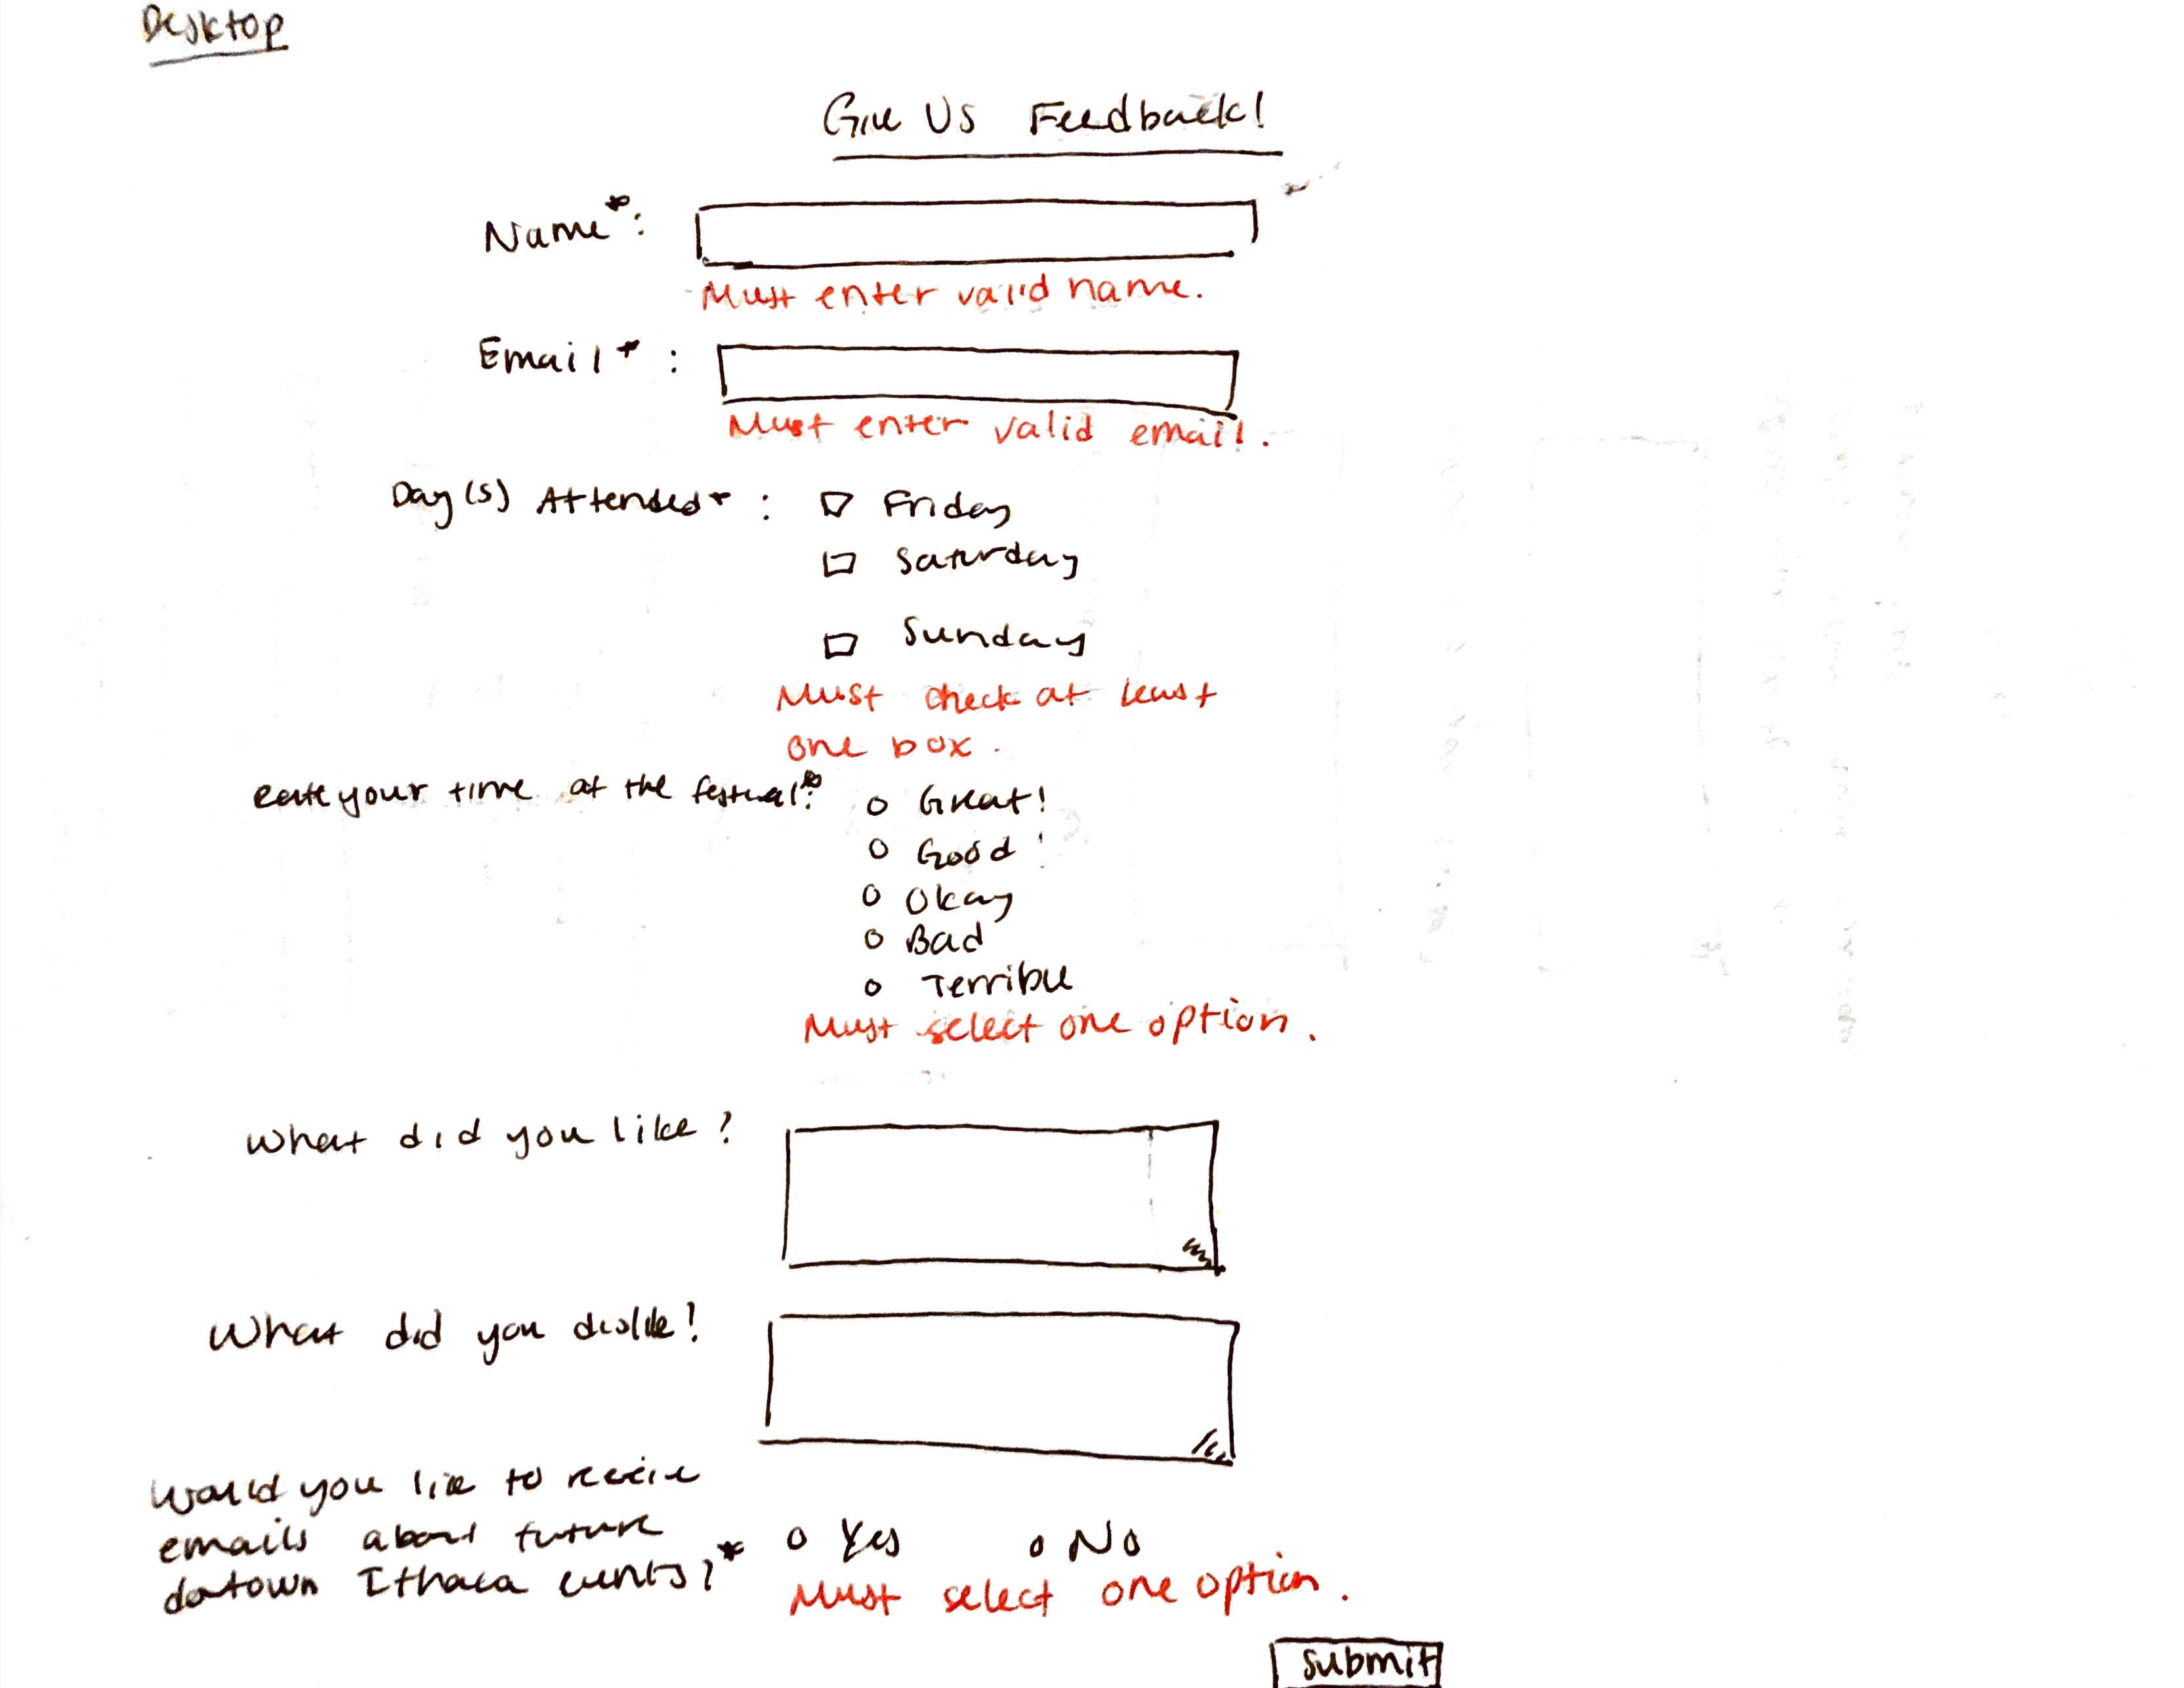 Desktop
Give Us Feedback!
Name*:
Must enter valid name.
Email*:
Must enter valid email.
Day(s) Attended*: Friday
Saturday
Sunday
Must check at least
one box.
Rate your time at the festival*: Great!
Good!
Okay
Bad
Terrible
Must select one option.
What did you like?
What did you dislike?
Would you like to receive
emails about future
dowtown Ithaca events?* Yes No
Must select one option.
Submit